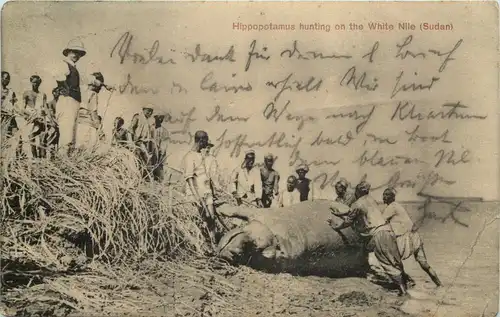 Hippopotamus hunting on the White Nile (Sudan)
Vielen Dank für Deinen l. Brief
den in Cairo erhielt. Wir sind
auf dem Wege nach Khartum
hoffentlich bald, im Boot
blauen Nil.